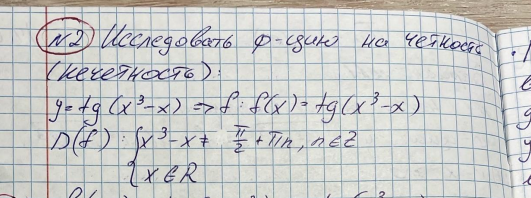 №2 Исследовать ф-цию на четность
(нечетность):
y = tg(x³-x) => f: f(x) = tg(x³-x)
D(f): { x³-x ≠ π/2 + πn, n ∈ Z
x ∈ R